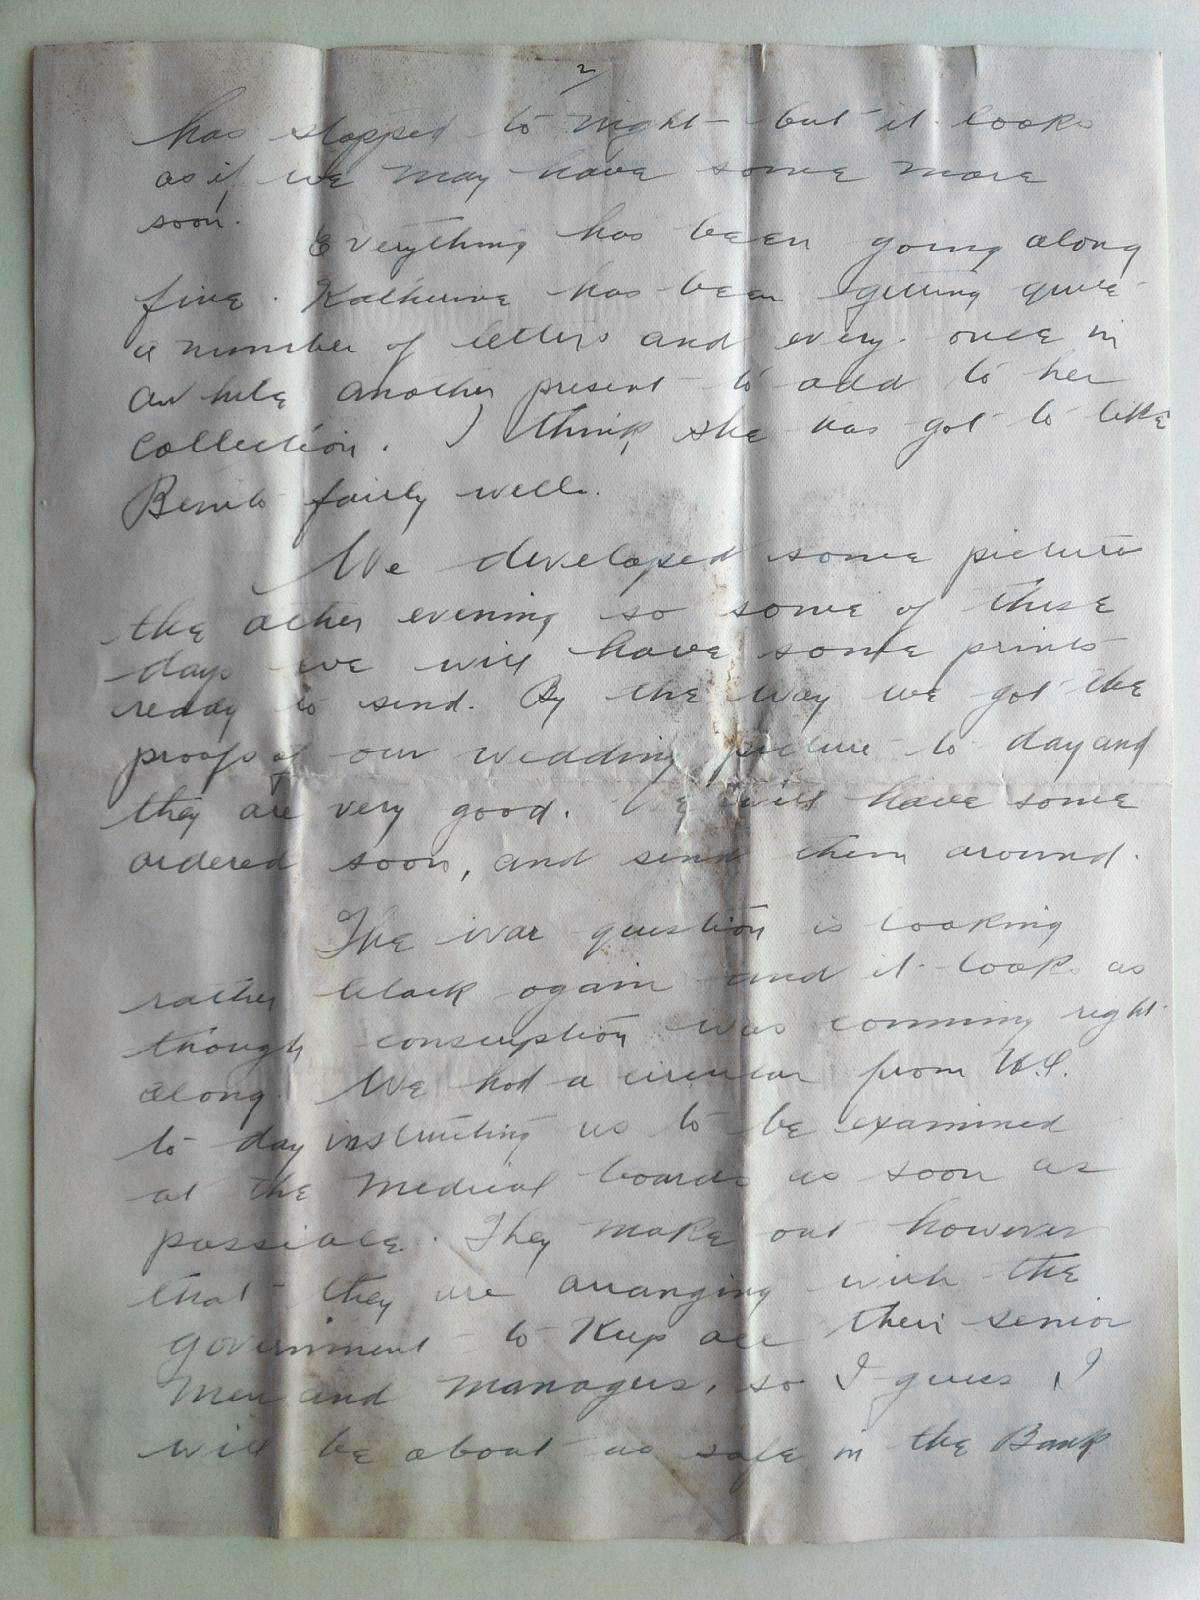 2
has stopped to night but it looks
as if we may have some more
soon.
Everything has been going along
fine. Katherine has been getting quite
a number of letters and every once in
awhile another present to add to her
collection. I think she has got to like
Benito fairly well.
We developed some picture
the other evening so some of these
days we will have some prints
ready to send. By the way we got the
proofs of our wedding picture to day and
they are very good. We will have some
ordered soon, and send them around.
The war question is looking
rather black again and it looks as
though conscription was comming right
along. We had a circular from
to day instructing us to be examined
at the Medical boards as soon as
possible. They make out however
that they are arranging with the
government to Keep all their senior
Men and managers, so I guess I
will be about as safe in the Bank